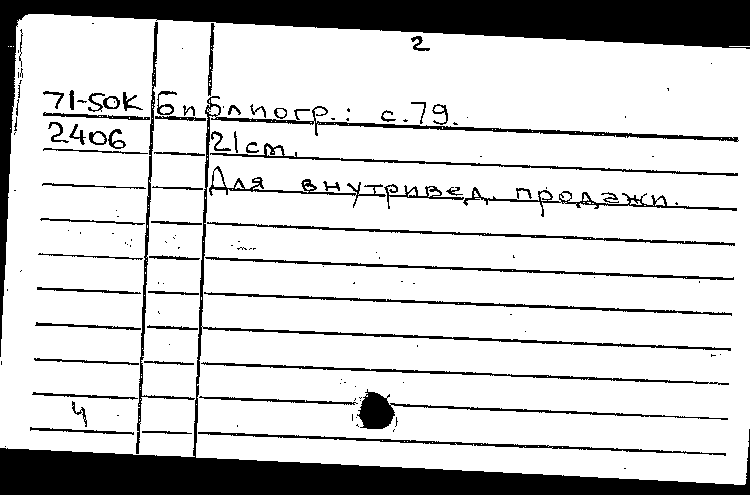 2
71-50К Библиогр.: с.79.
2406 21 см.
Для внутривед. продажи.
4